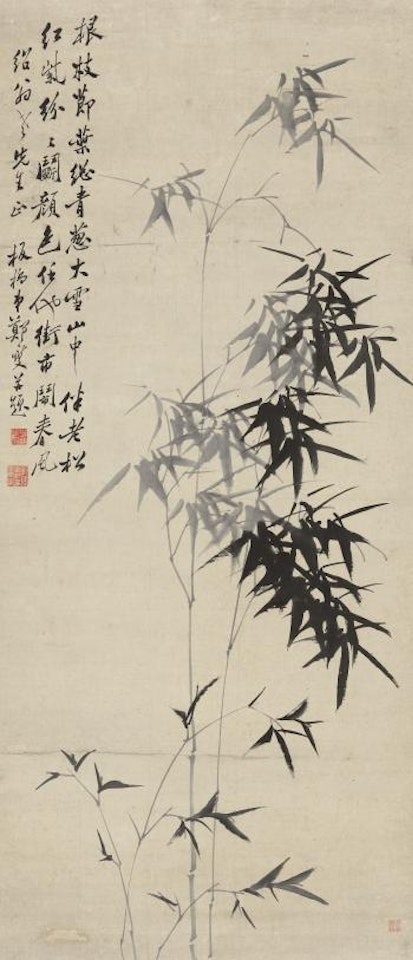 根枝節葉總青蔥大雪山中伴老松
紅紫紛〻鬪顏色任他街市鬧春風
紹翁老先生正 板橋弟鄭燮并題